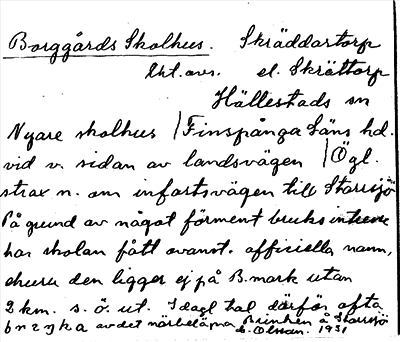 Borggårds Skolhus. Skräddartorp
Ekt. avs. el. Skrättorp
Hällestads sn
Nyare skolhus / Finspånga läns hd.
vid v. sidan av landsvägen / Ögl.
strax n. om infartsvägen till Starrsjö
På grund av något förment bruksintresse
har skolan fått ovanst. officiella namn,
ehuru den ligger ej på B.mark utan
2 km. s. ö. ut. I dagl tal därför ofta
av det närbelägna Brinken å Starrsjö
E. Olsson. 1931